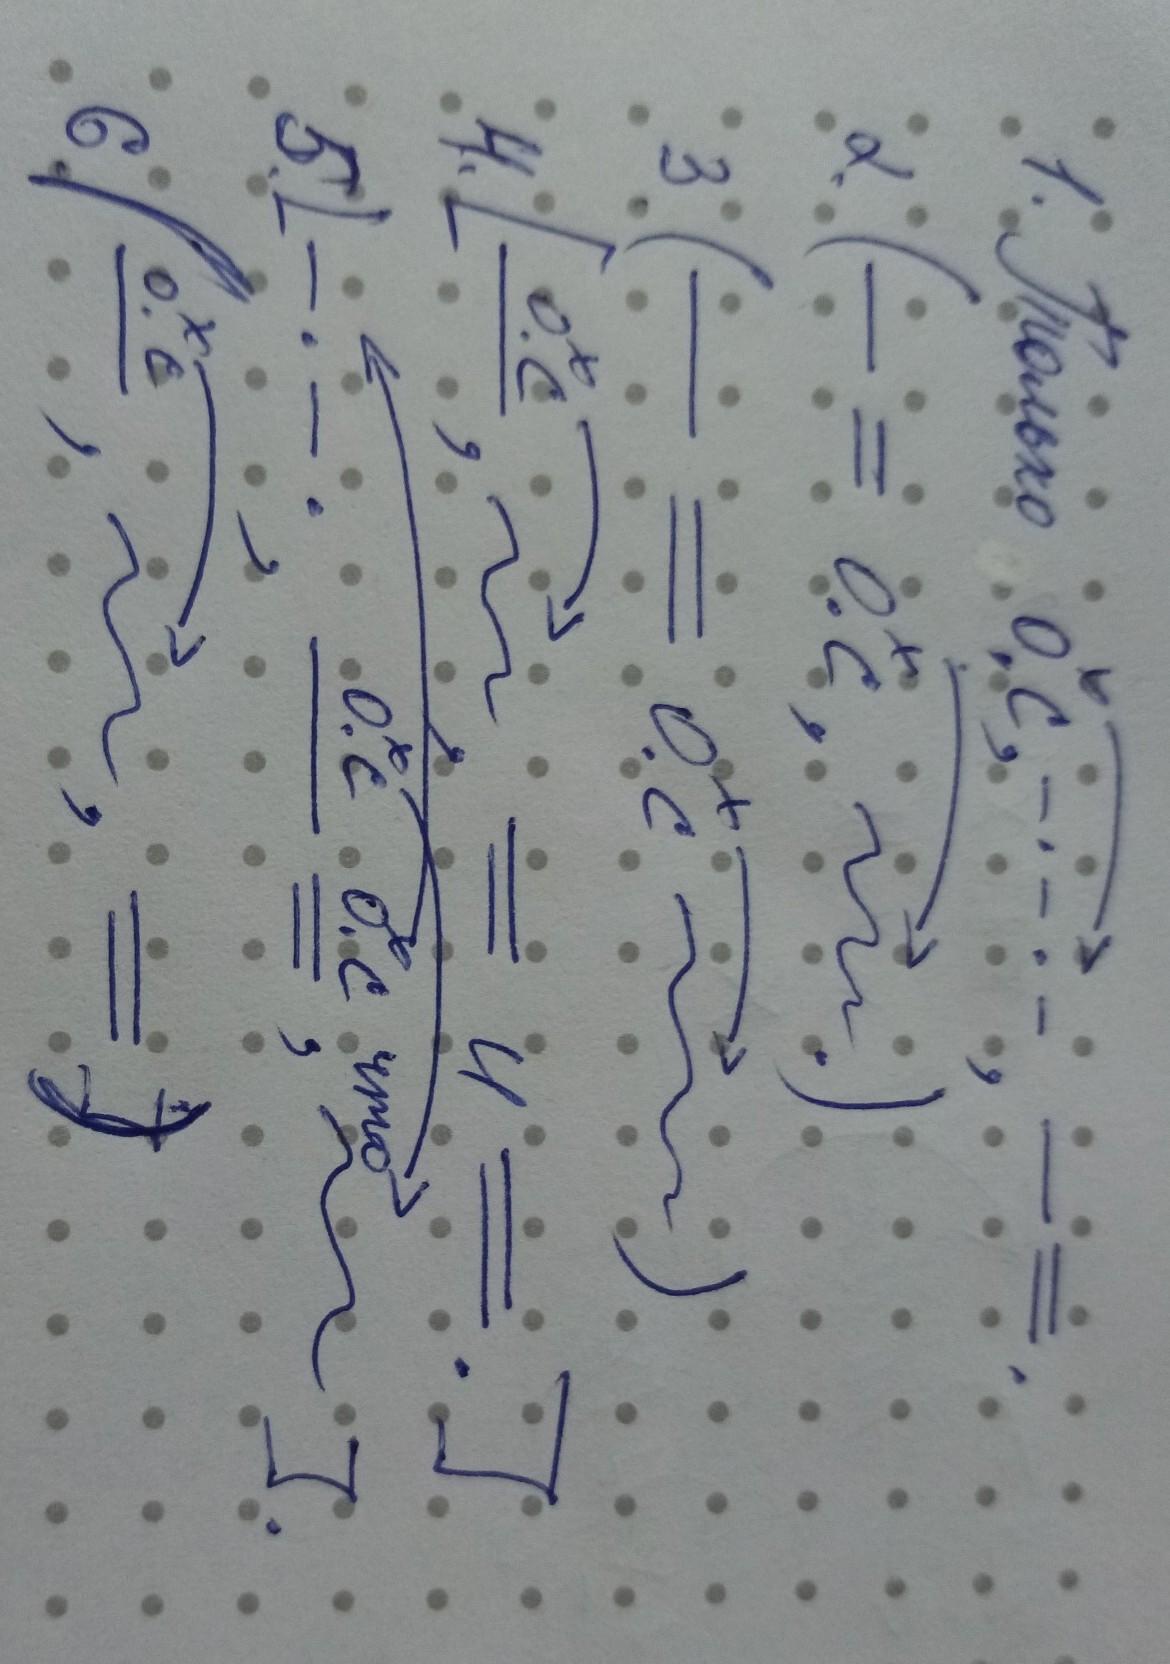 1. Только О.С, х
2. О.С, х
3 О.С х
4. О.С х, , И .
5. , О.С х О.С х, что .
6. О.С х, ,